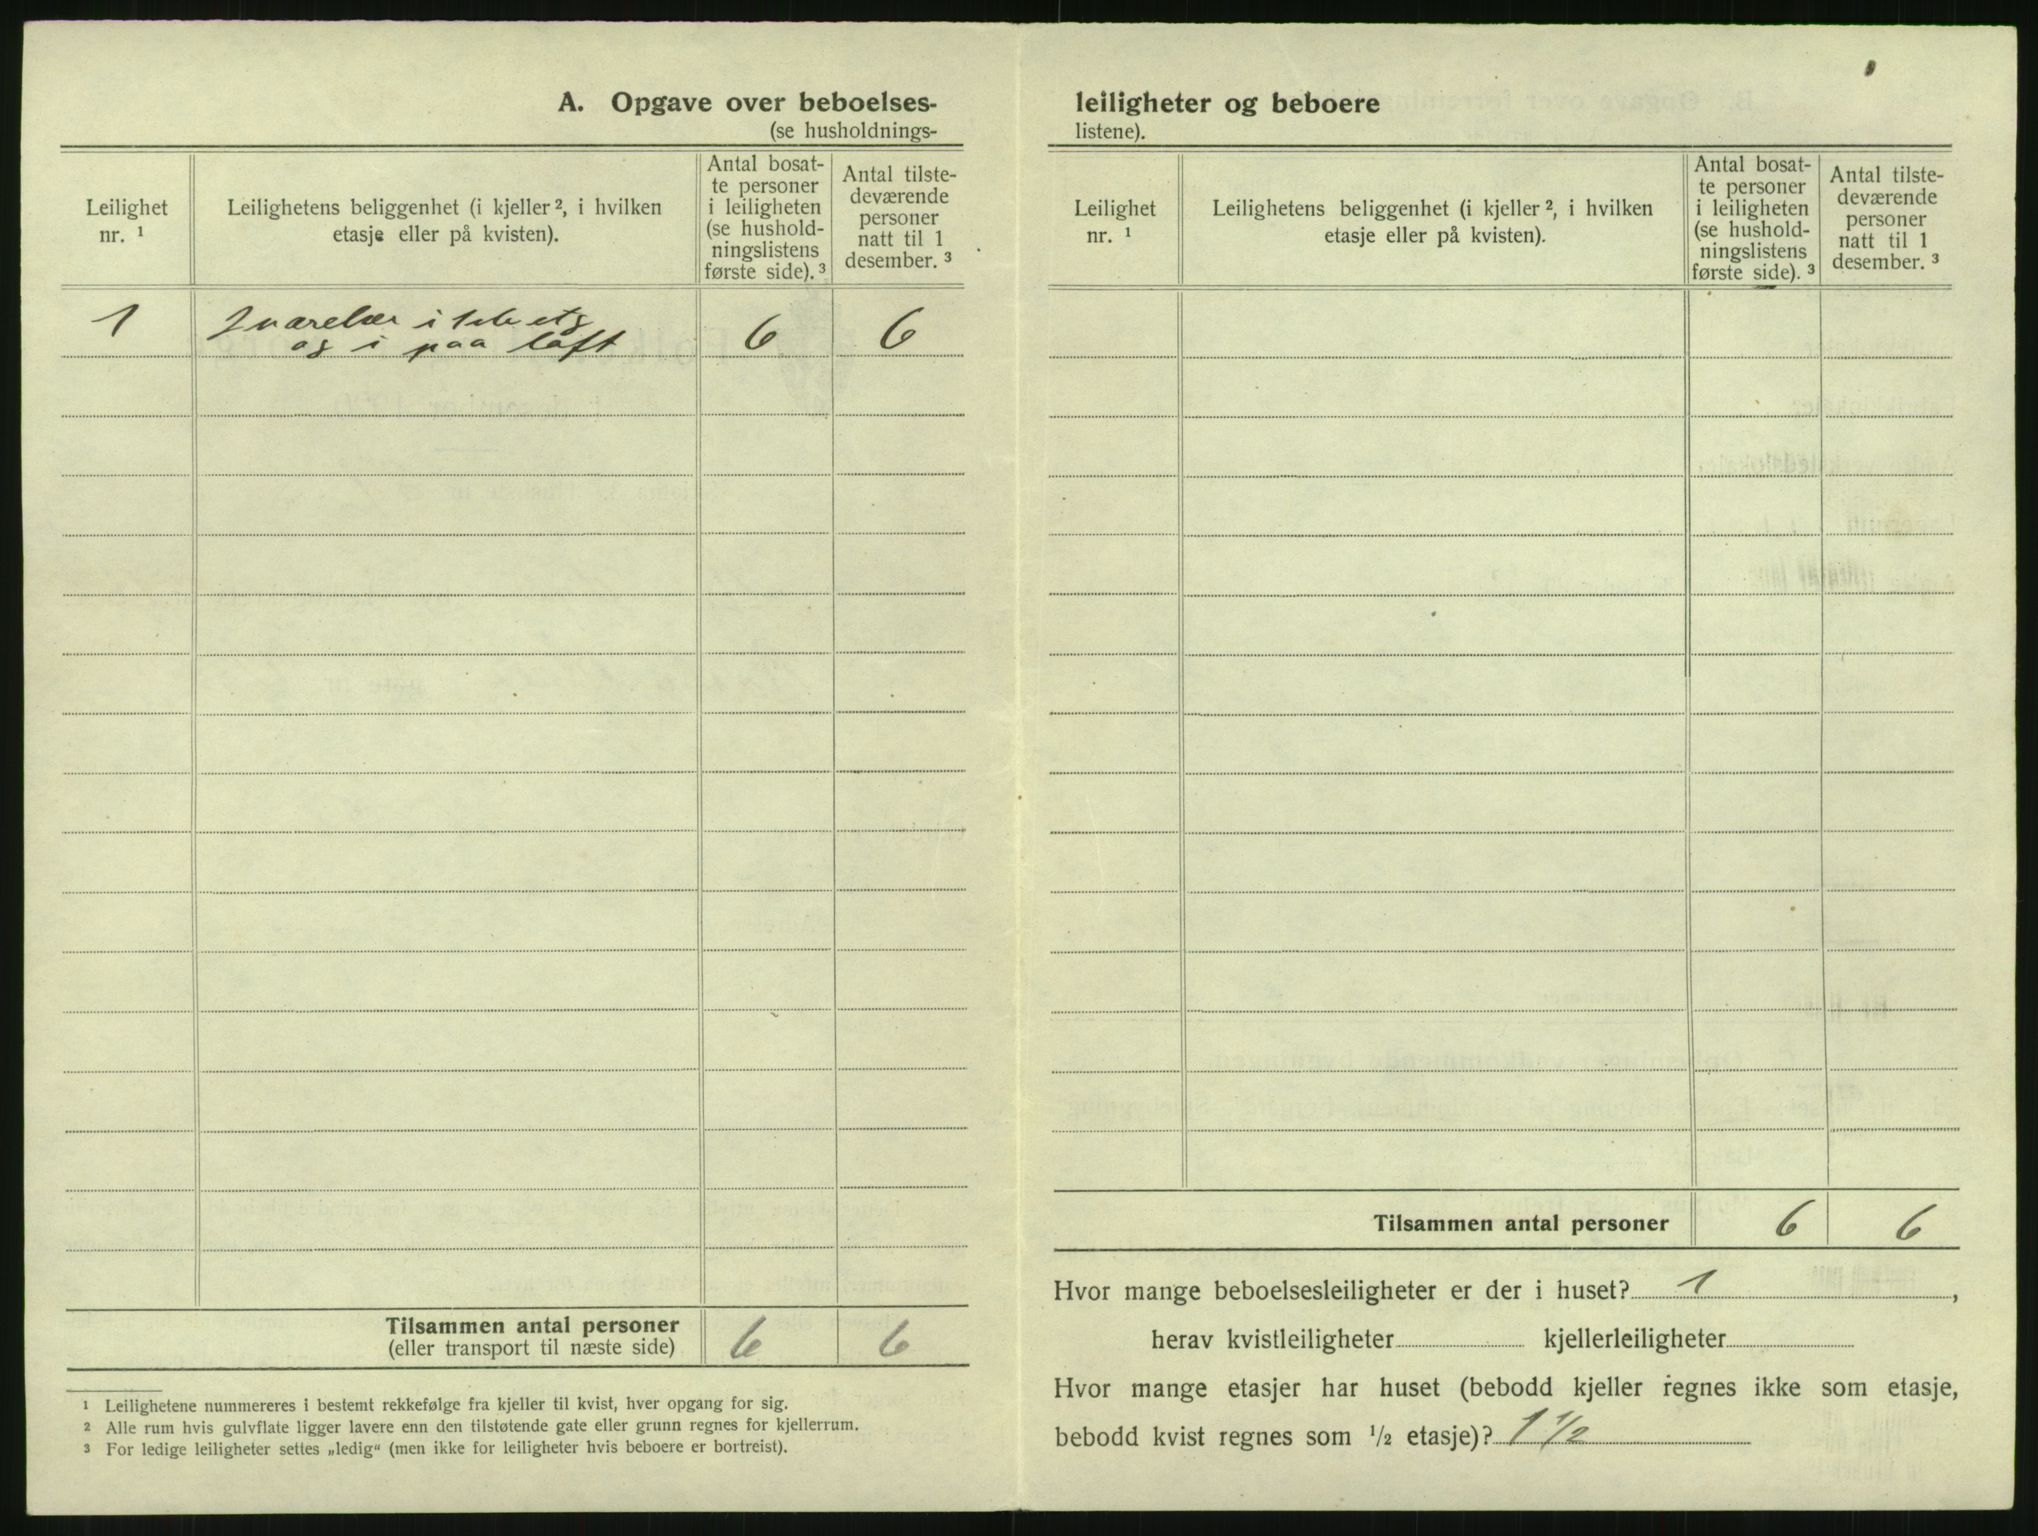 A. Opgave over beboelses-
(se husholdnings-
Leilighet
nr. ¹
Leilighetens beliggenhet (i kjeller ², i hvilken
etasje eller på kvisten).
Antal bosat-
te personer
i leiligheten
(se hushold-
ningslistens
første side). ³
Antal tilste-
deværende
personer
natt til 1
desember. ³
1
værelser i 1ste etg
og i paa loft
6
6
Tilsammen antal personer
(eller transport til næste side)
6
6
¹ Leilighetene nummereres i bestemt rekkefølge fra kjeller til kvist, hver opgang for sig.
² Alle rum hvis gulvflate ligger lavere enn den tilstøtende gate eller grunn regnes for kjellerrum.
³ For ledige leiligheter settes „ledig“ (men ikke for leiligheter hvis beboere er bortreist).
leiligheter og beboere
listene).
Leilighet
nr. ¹
Leilighetens beliggenhet (i kjeller ², i hvilken
etasje eller på kvisten).
Antal bosat-
te personer
i leiligheten
(se hushold-
ningslistens
første side). ³
Antal tilste-
deværende
personer
natt til 1
desember. ³
Tilsammen antal personer
6
6
Hvor mange beboelsesleiligheter er der i huset? 1 ,
herav kvistleiligheter kjellerleiligheter
Hvor mange etasjer har huset (bebodd kjeller regnes ikke som etasje,
bebodd kvist regnes som ½ etasje)? 1 ½